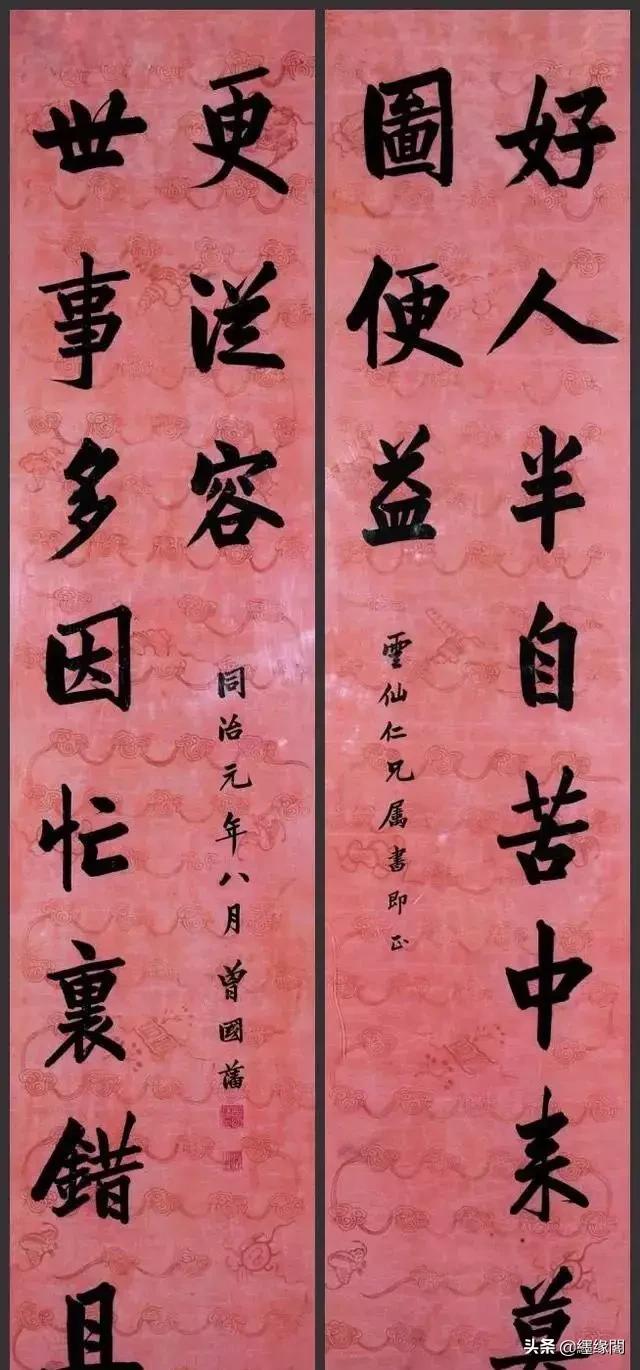 好人半自苦中来莫
圖便益
雲仙仁兄属書即正
世事多因忙裏錯且
更從容
同治元年八月曾國藩
头条 @缘閣